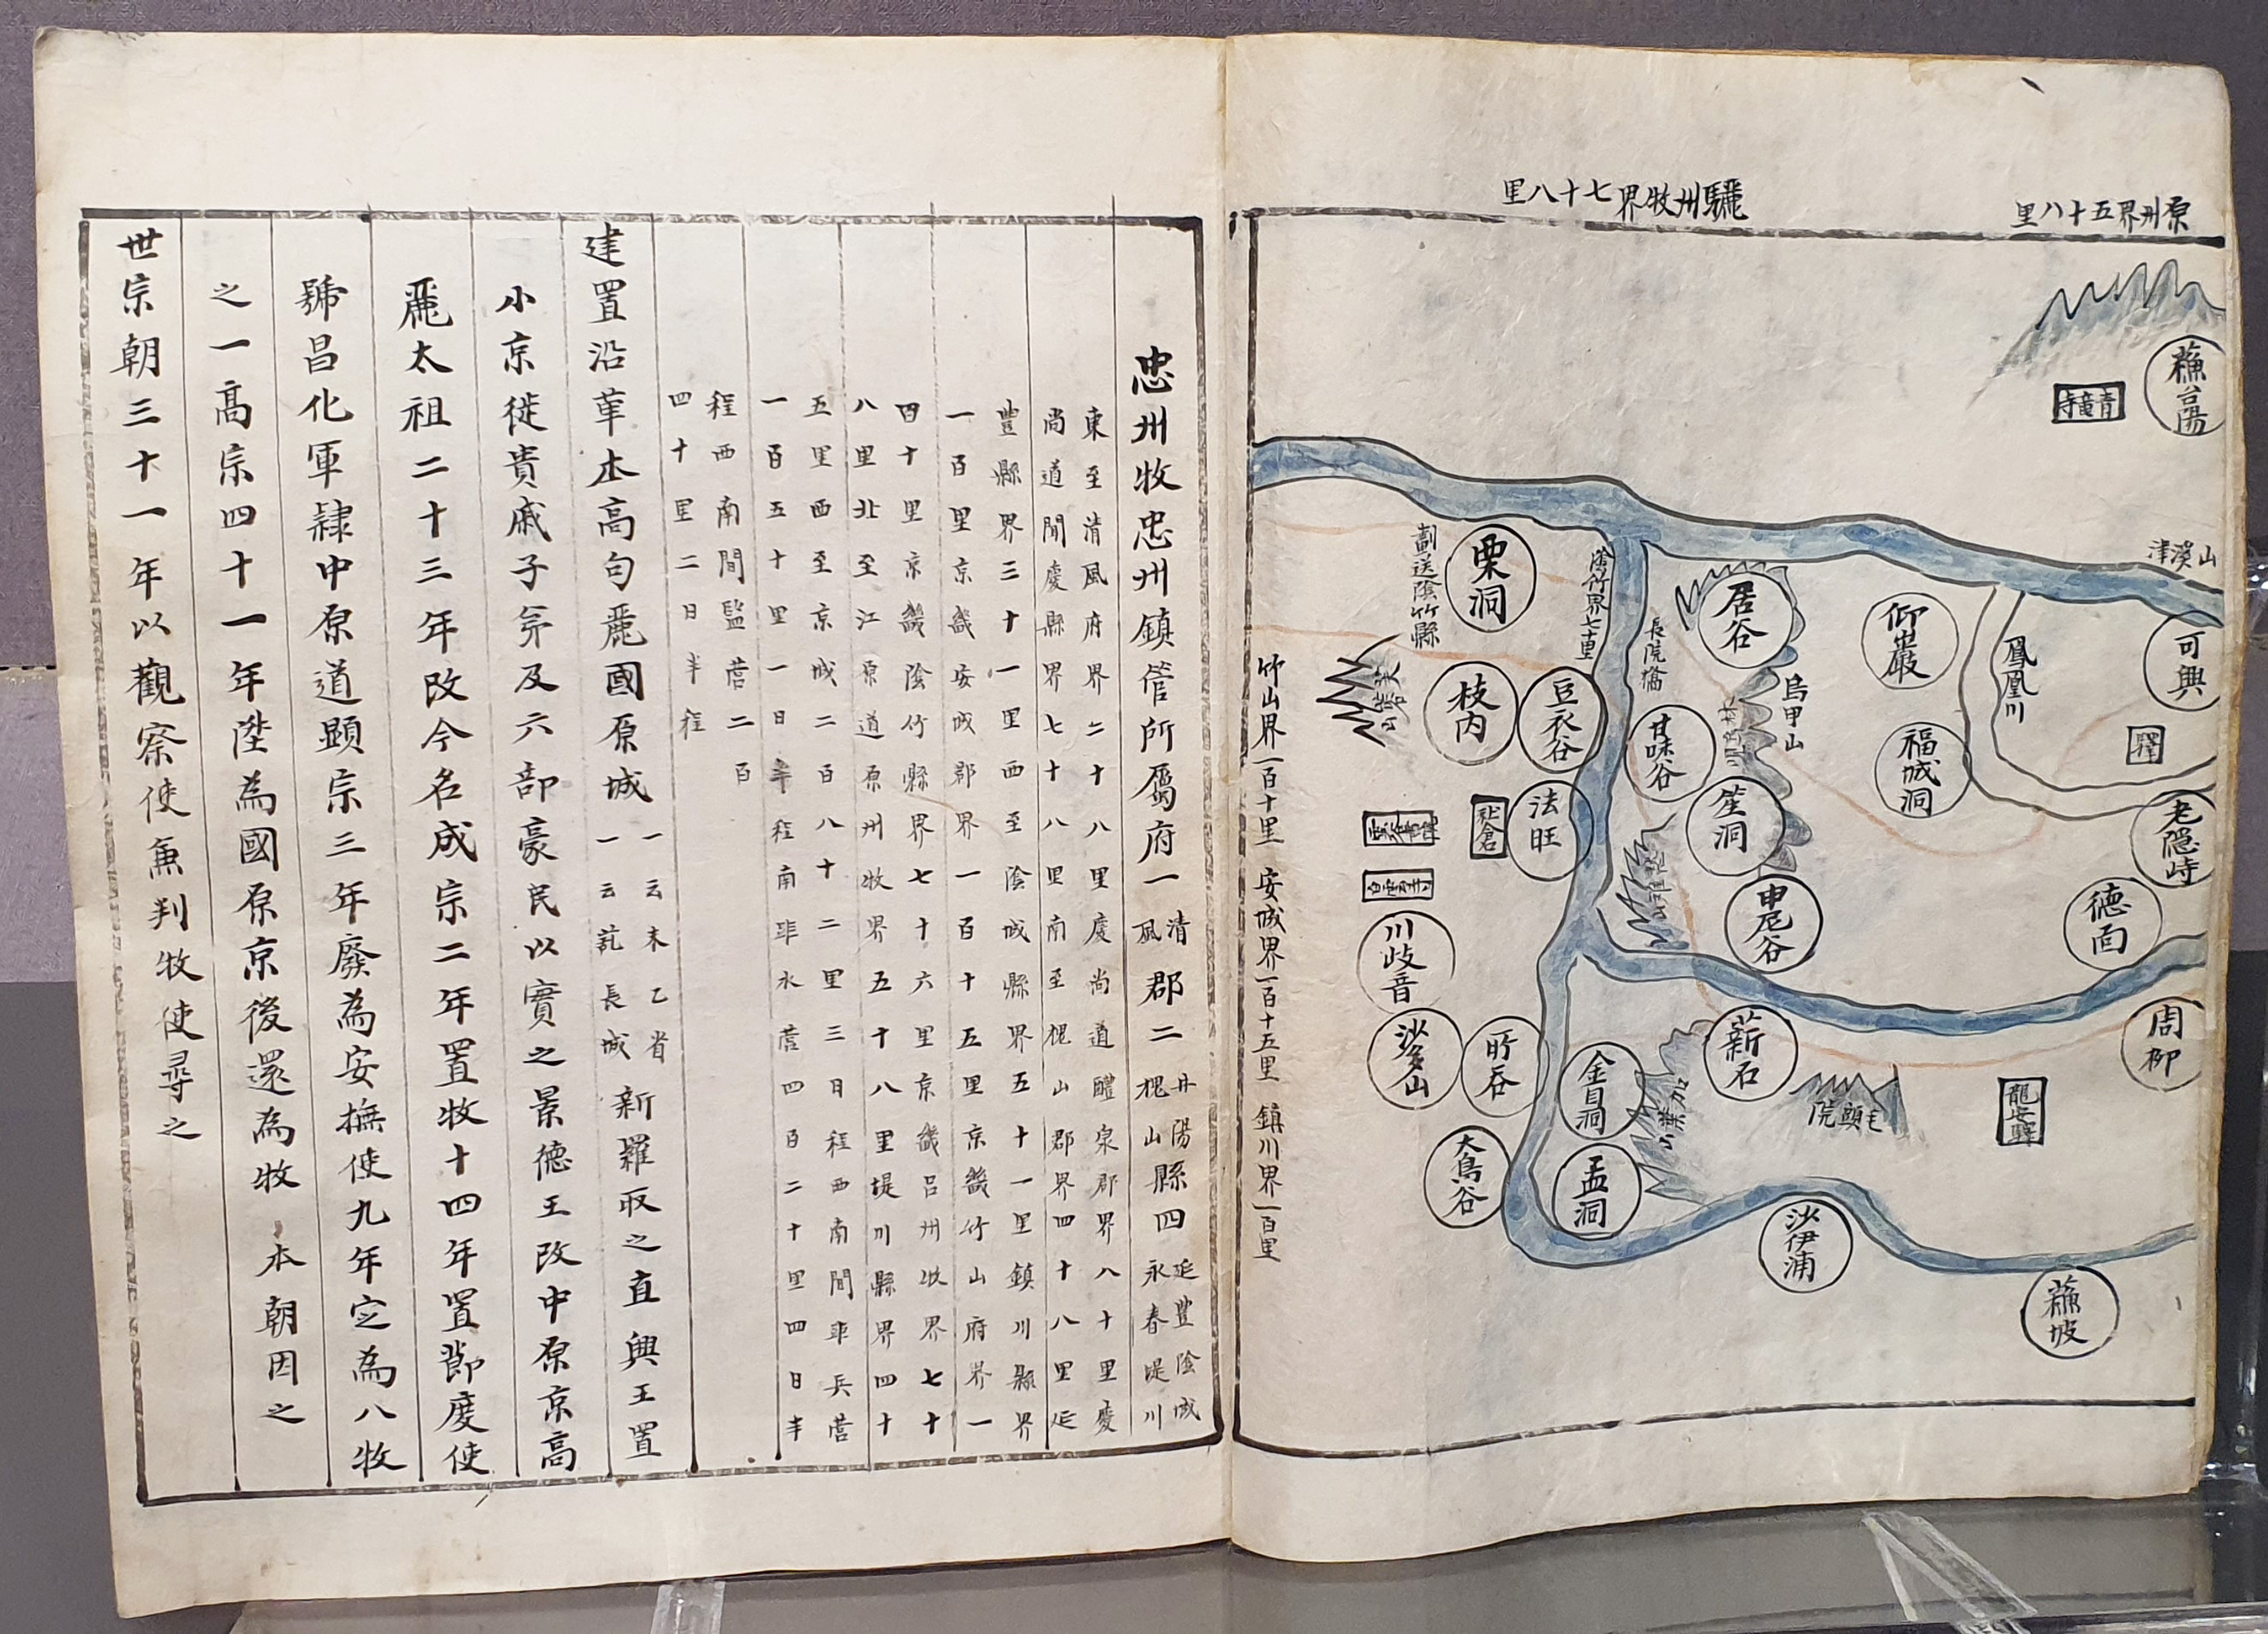 原州界五十八里
驪州牧界七十八里
蘇台陽
青龍寺
山溪津
可興
驛
鳳凰川
老隱峙
德面
周柳
龍安驛
蘇坡
仰巖
福城洞
居谷
烏甲山
笙洞
申尼谷
薪石
毛頭院
沙伊浦
長院橋
甘味谷
陰竹界七里
豆衣谷
法旺
北倉
金目洞
孟洞
栗洞
枝內
所呑
大鳥谷
劃送陰竹縣
川岐音
沙多山
竹山界一百十里
安城界一百十五里
鎭川界一百里
忠州牧忠州鎭管所屬府一清風郡二丹陽槐山縣四延豊陰城永春堤川
東至清風府界二十八里慶尚道醴泉郡界八十里慶
尚道聞慶縣界七十八里南至槐山郡界四十八里延
豊縣界三十一里西至陰城縣界五十一里鎭川縣界
一百里京畿安城郡界一百十五里京畿竹山府界一
四十里京畿陰竹縣界七十六里京畿呂州牧界七十
八里北至江原道原州牧界五十八里堤川縣界四十
五里西至京城二百八十二里三日程西南間距兵營
一百五十里一日半程南距水營四百二十里四日半
程西南間監營二百
四十里二日半程
建置沿革本高句麗國原城一云未乙省一云託長城新羅取之直興王置
小京徙貴戚子弟及六部豪民以實之景德王改中原京高
麗太祖二十三年改今名成宗二年置牧十四年置節度使
號昌化軍隸中原道顯宗三年廢為安撫使九年定為八牧
之一高宗四十一年陞為國原京後還為牧 本朝因之
世宗朝三十一年以觀察使兼判牧使尋之